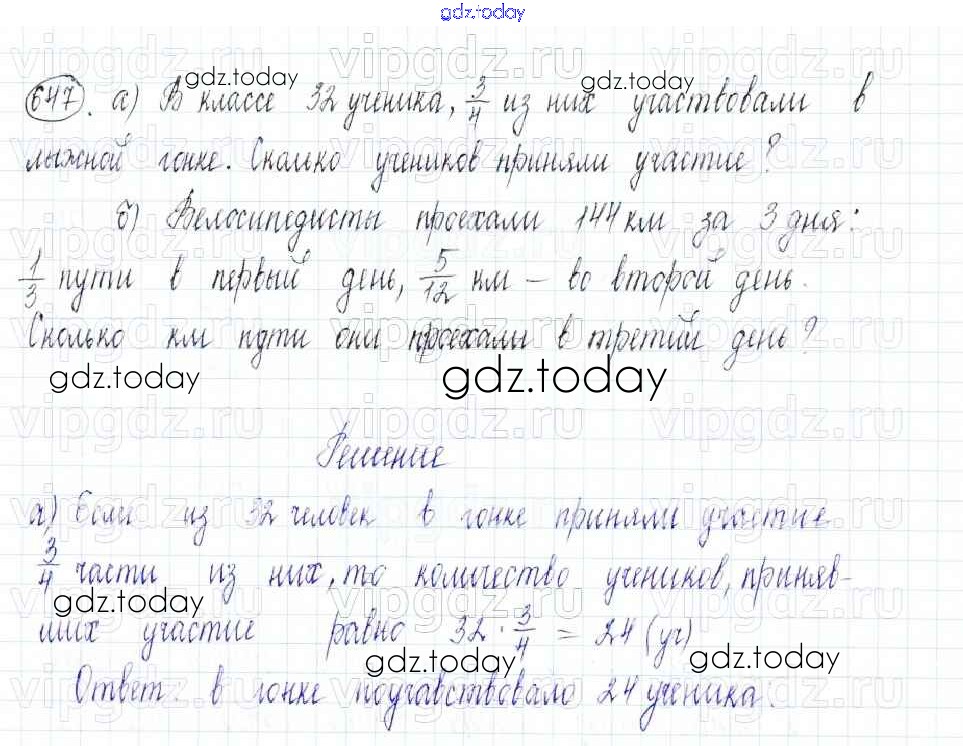 gdz.today
647. а) В классе 32 ученика, 3/4 из них участвовали в
лыжной гонке. Сколько учеников приняли участие?
б) Велосипедисты проехали 144 км за 3 дня:
1/3 пути в первый день, 5/12 км – во второй день.
Сколько км пути они проехали в третий день?
gdz.today
gdz.today
Решение
а) Если из 32 человек в гонке приняли участие
3/4 части из них, то количество учеников,приняв-
ших участие равно 32 · 3/4 = 24 (уч)
Ответ: в гонке поучавствовало 24 ученика.